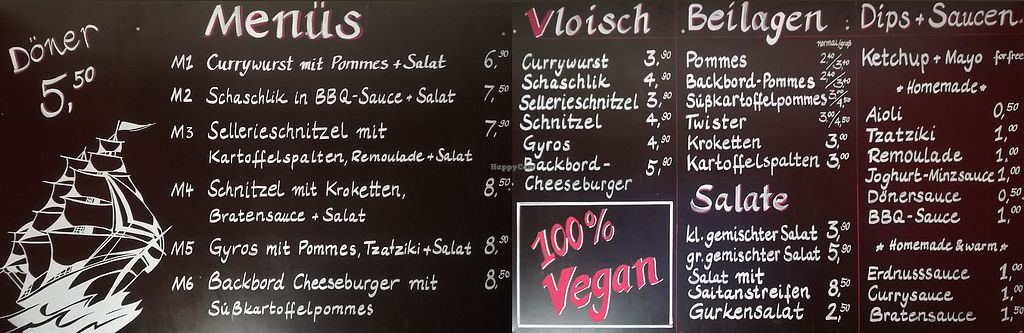 Döner
5,50
Menüs
M1 Currywurst mit Pommes + Salat 6,90
M2 Schaschlik in BBQ-Sauce + Salat 7,50
M3 Sellerieschnitzel mit 7,90
Kartoffelspalten, Remoulade + Salat
M4 Schnitzel mit Kroketten, 8,50
Bratensauce + Salat
M5 Gyros mit Pommes, Tzatziki + Salat 8,90
M6 Backbord Cheeseburger mit 8,50
Süßkartoffelpommes
Vloisch
Currywurst 3,90
Schaschlik 4,90
Sellerieschnitzel 3,90
Schnitzel 4,90
Gyros 4,90
Backbord- 5,90
Cheeseburger
100%
Vegan
Beilagen
normal/groß
Pommes 2,40/3,40
Backbord-Pommes 2,40/3,40
Süßkartoffelpommes 3,00/4,50
Twister 3,00/4,50
Kroketten 3,00
Kartoffelspalten 3,00
Salate
kl. gemischter Salat 3,90
gr. gemischter Salat 5,90
Salat mit
Saitanstreifen 8,50
Gurkensalat 2,50
Dips + Saucen
Ketchup + Mayo for free
* Homemade *
Aioli 0,50
Tzatziki 1,00
Remoulade 1,00
Joghurt-Minzsauce 1,00
Dönersauce 0,50
BBQ-Sauce 1,00
* Homemade & warm *
Erdnusssauce 1,00
Currysauce 1,00
Bratensauce 1,50